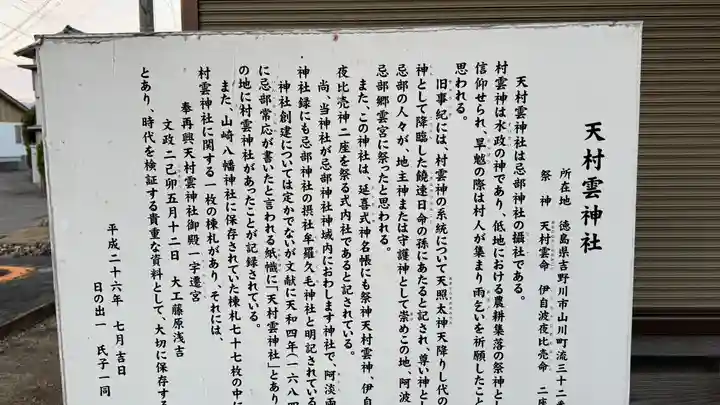 天村雲神社
所在地　徳島県吉野川市山川町流三十二番
祭　神　天村雲命　伊自波夜比売命　二座
天村雲神社は忌部神社の攝社である。
村雲神は水政の神であり、低地における農耕集落の祭神とし
信仰せられ、旱魃の際は村人が集まり雨乞いを祈願したこと
思われる。
旧事紀には、村雲神の系統について天照太神天降りし代の
神として降臨した饒速日命の孫にあたると記され、尊い神とし
忌部の人々が、地主神または守護神として崇めこの地、阿波
忌部郷雲宮に祭ったと思われる。
また、この神社は、延喜式神名帳にも祭神天村雲神、伊自
夜比売神二座を祭る式内社であると記されている。
尚、当神社が忌部神社神域内におわします神社で、阿淡両
神社録にも忌部神社の摂社牟羅久毛神社と明記されている
神社創建については定かでないが文献に天和四年（一六八四
に忌部常応が書いたと言われる紙幟に「天村雲神社」とあり
の地に村雲神社があったことが記録されている。
また、山崎八幡神社に保存されていた棟札七十七枚の中に
村雲神社に関する一枚の棟札があり、それには、
奉再興天村雲神社御殿一宇遷宮
文政二己卯五月十二日　大工藤原浅吉
とあり、時代を検証する貴重な資料として、大切に保存する
平成二十六年　七月吉日
日の出一　氏子一同